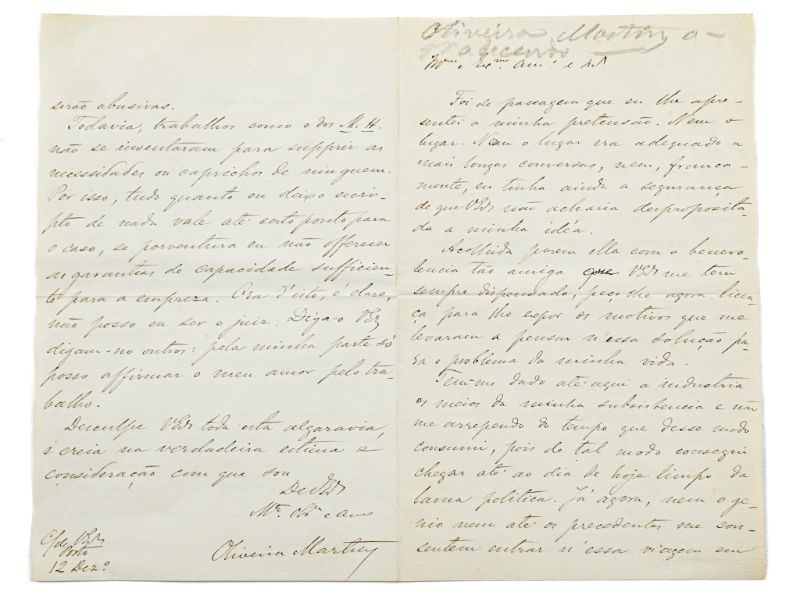 serão abusivas.
Todavia, trabalhos como o dos M. H.
não se inventaram para supprir as
necessidades ou caprichos de ninguem.
Por isso, tudo quanto eu deixo escri-
pto de nada vale até certo ponto para
o caso, se porventura eu não offerecer
as garantias de capacidade sufficien-
te para a empreza. Ora d'isto, é claro,
não posso eu ser o juiz. Diga-o VEx
digam-no outros: pela minha parte só
posso affirmar o meu amor pelo tra-
balho.
Desculpe VEx toda esta algaravia,
e creia na verdadeira estima e
consideração com que sou
De VEx
Mto. Obr. e amo
Oliveira Martins
C/de VEx
Porto
12 Dezo
Oliveira Martins a-
Exmo. Amo. e
Foi de passagem que eu lhe apre-
sentei a minha pretensão. Nem o
lugar. Nem o lugar era adequado a
mais longas conversas, nem, franca-
mente, eu tinha ainda a segurança
de que VEx não acharia desproposita-
da a minha idea.
Acolhida porem ella com a benevo-
lencia tão amiga que VEx me tem
sempre dispensado, peço-lhe agora licen-
ça para lhe expor os motivos que me
levaram a pensar n'essa solução pa-
ra o problema da minha vida.
Tem-me dado até aqui a industria
os meios da minha subsistencia e não
me arrependo do tempo que desse modo
consumi, pois de tal modo consegui
chegar até ao dia de hoje limpo da
lama politica. Já agora, nem o ge-
nio nem até os precedentes me con-
sentem entrar n'essa viagem em